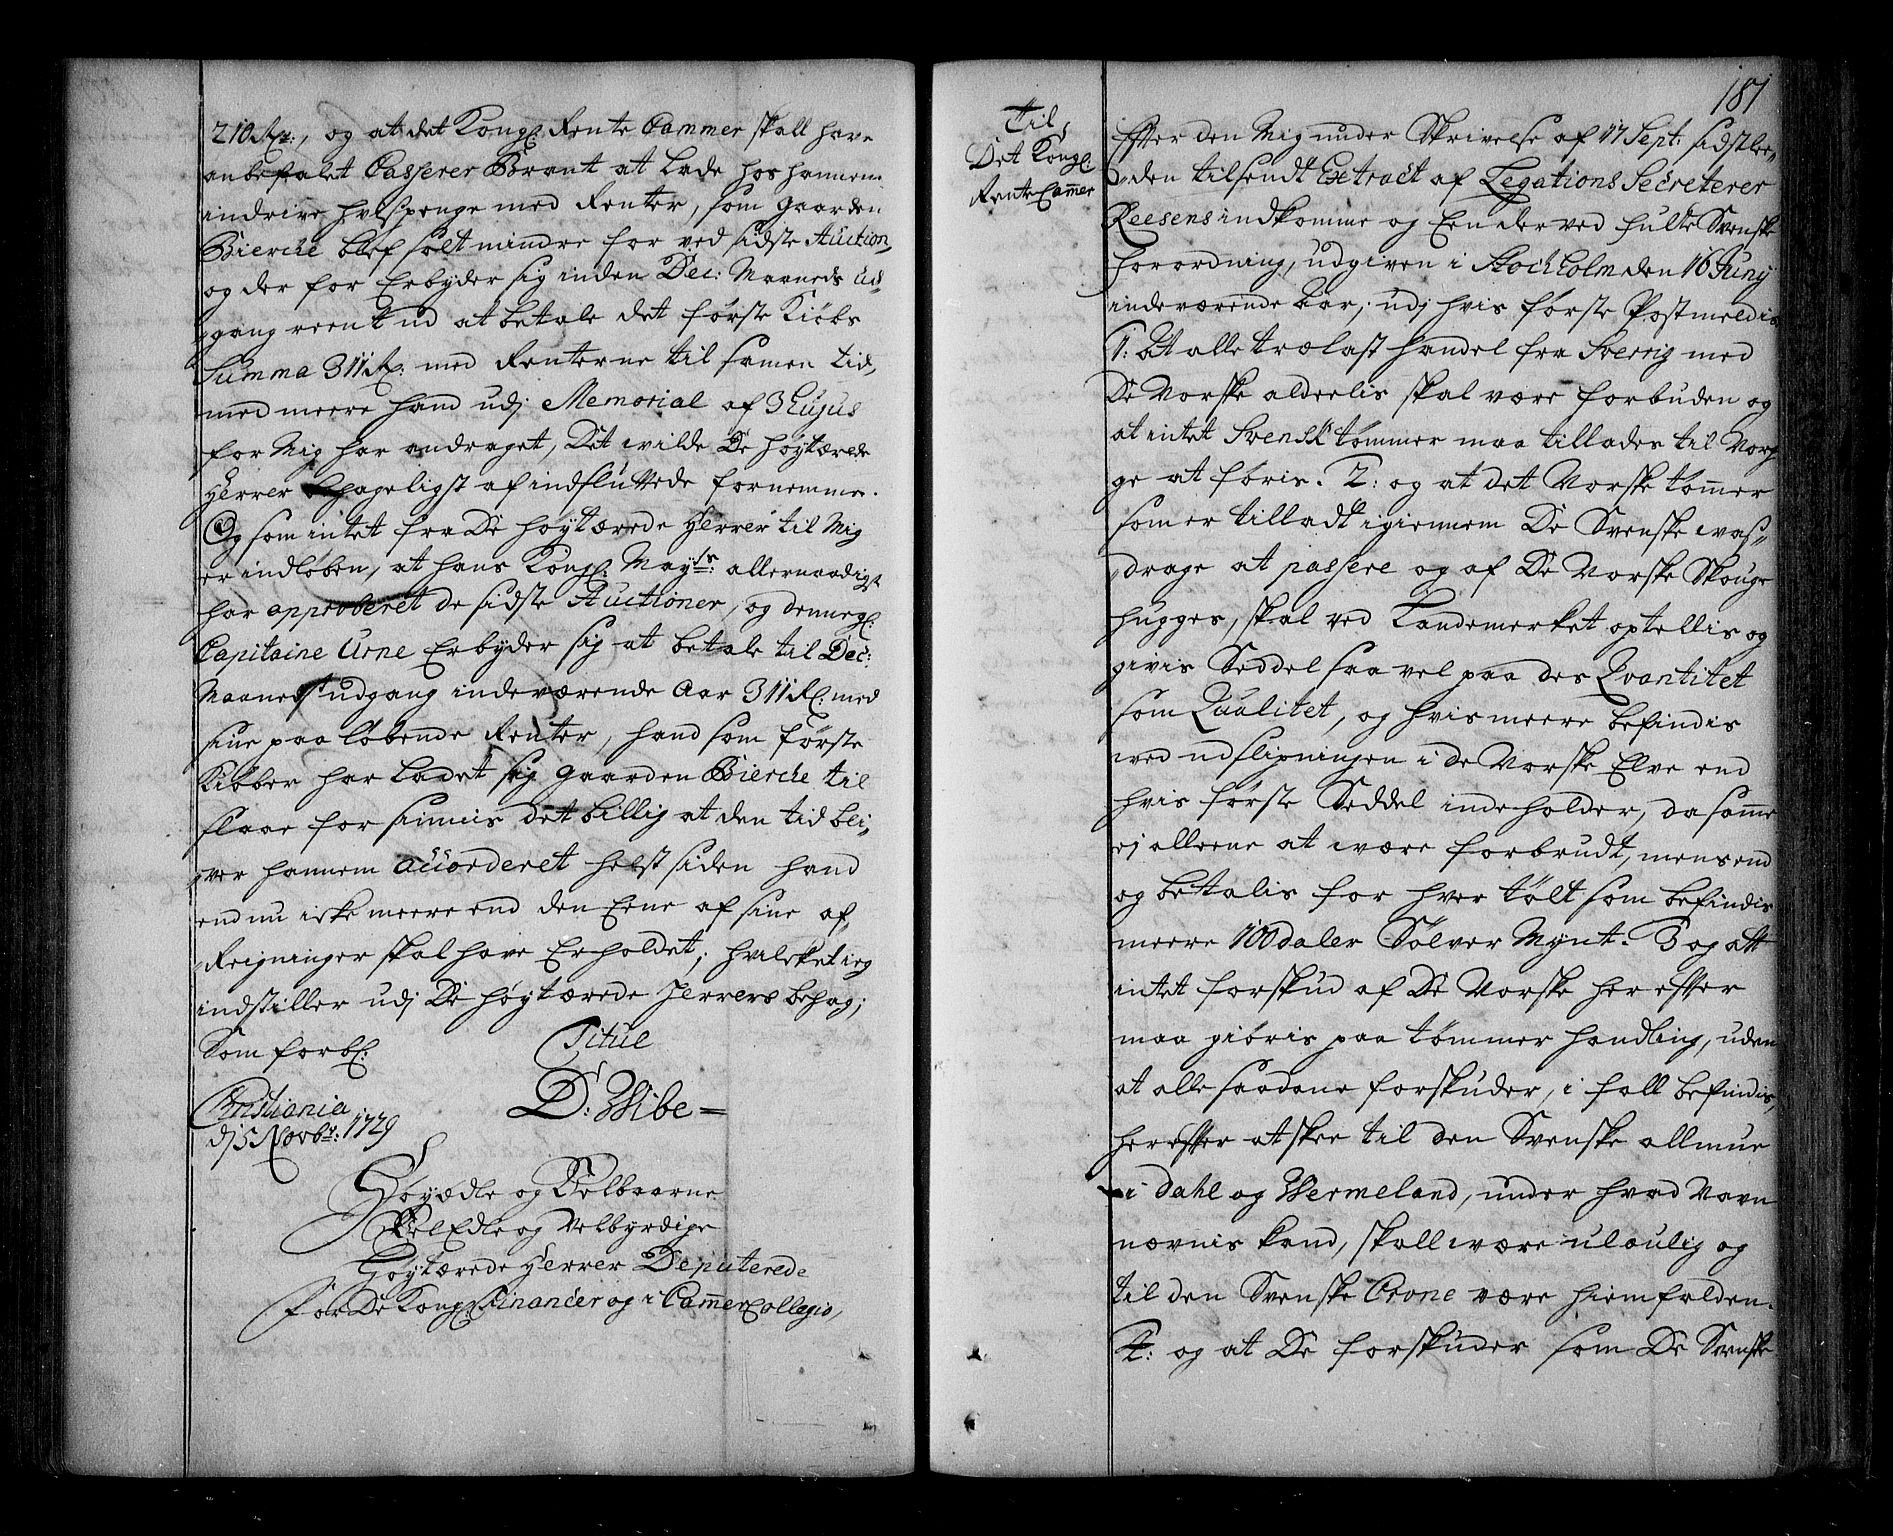 210 Rdr:, og at det Kongl: Rente Cammer skall have
anbefalet Casserer Brant at lade hos hannem
indrive hvis penge med Renter, som gaarden
Bierche blef solt mindre for ved sidste Auction,
og der for Erbyder sig inden Dec: Maaneds ud-
gang reent ud at betale det første Kiøbs
Summa 311 R: med Renterne til samen tid,
med meere hand udj Memorial af 3 Hujus
for Mig har andraget, Det wilde De høytærede
Herrer behageligst af indsluttede fornemme.
Og som intet fra De høytærede Herrer til Mig
er indløben, at hans Kongl: Mayts: allernaadigst
har approberet de sidste Auctioner, og bemelte
Capitaine Urne Erbyder sig at betale til Dec:
Maaneds udgang indeværende Aar 311 R: med
sine paa løbende Renter, hand som første
Kiøber har ladet sig gaarden Bierche til
slaae for siunis det billig at den tid bli-
ver hannem accorderet helst siden hand
end nu icke meere end den Eene af sine af-
Reigninger skal have Erholdet; hvilcket ieg
indstiller udj De høytærede Herrers behag;
Som forbl:
Titul
D: Wibe
Christiania
dj 5 Novbr: 1729
Høyædle og Velbaarne
Vel Edle og Velbyrdige
Høytærede Herrer Deputerede
for De Kongl: Financer og i Cammer Collegio,
181
Til
Det Kongl:
Rente Cammer
Effter den Mig under Skrivelse af 17 Sept: sidstlee-
den tilsendt Extract af Legations Secreterer
Reesens indkomme og Een der ved fulte Svenske
forordning, udgiven i Stockholm den 16 Juny
indeværende Aar, udj hvis første Post meldis
1: At alle trælast handel fra Sverrig med
De Norske alderlis skal være forbuden og
at intet Svensk tømmer maa tillades til Nor-
ge at føris. 2: og at det Norske tømer
som er tilladt igiennem De Svenske was-
drage at passere og af De Norske Skouge
hugges, skal ved Landemerket optellis og
givis Seddel saa vel paa des Qvantitet
som Qualitet, og hvis meere befindis
ved udslipningen i de Norske Elve end
hvis første Seddel indeholder, da same
ej alleene at være forbrudt, mens end
og betalis for hver tølt som befindis
meere 100 daler Sølver Mynt. 3 og att
intet forskud af De Norske her effter
maa giøris paa tømmer handling, uden
at alle saadane forskuder, i fall befindis,
her effter at skee til den Svenske allmue
i Dahl og Wermeland, under hvad Navn
nævnis kand, skall være ulovlig og
til den Svenske Crone være hiemfalden.
4: og at De forskuder som De Svenske